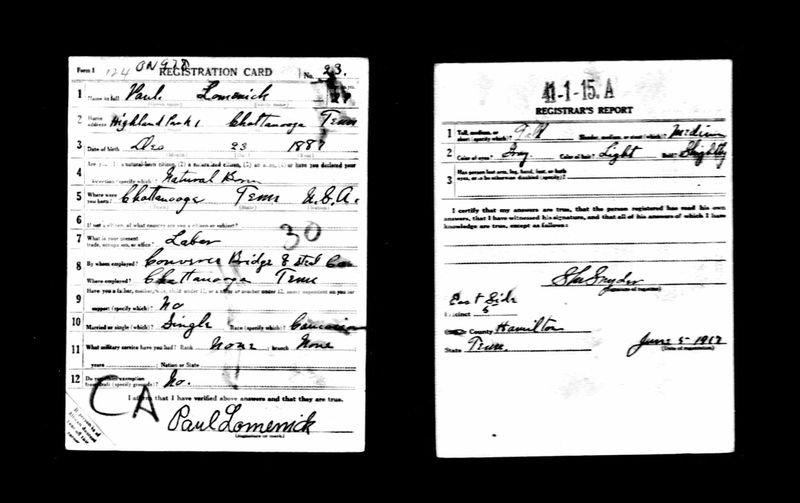 Form 1 REGISTRATION CARD No. 23.
1 Name in full Paul Lomenick
2 Home address Highland Park, Chattanooga Tenn
3 Date of birth Dec 23 1887
4 Are you (1) a natural-born citizen, (2) a naturalized citizen, (3) an alien, (4) or have you declared your
intention (specify which)? Natural Born
5 Where were you born? Chattanooga Tenn U.S.A.
6 If not a citizen, of what country are you a citizen or subject?
7 What is your present trade, occupation, or office? Labor
30
8 By whom employed? Converse Bridge & Steel Com
Where employed? Chattanooga Tenn
9 Have you a father, mother, wife, child under 12, or a sister or brother under 12, solely dependent on you for
support (specify which)? No
10 Married or single (which)? Single Race (specify which)? Caucasian
11 What military service have you had? Rank None ; branch None
years Nation or State
12 Do you claim exemption from draft (specify grounds)? No.
CA
I affirm that I have verified above answers and that they are true.
Paul Lomenick
(Signature or mark)
41-1-15. A
REGISTRAR'S REPORT
1 Tall, medium, or short (specify which)? Tall Slender, medium, or stout (which)? Medium
2 Color of eyes? Gray Color of hair? Light Bald? Slightly
3 Has person lost arm, leg, hand, foot, or both
eyes, or is he otherwise disabled (specify)?
I certify that my answers are true, that the person registered has read his own
answers, that I have witnessed his signature, and that all of his answers of which I have
knowledge are true, except as follows:
Snyder
(Signature of registrar)
East Side
Precinct 5
County Hamilton
State Tenn. June 5 1917
(Date of registration)